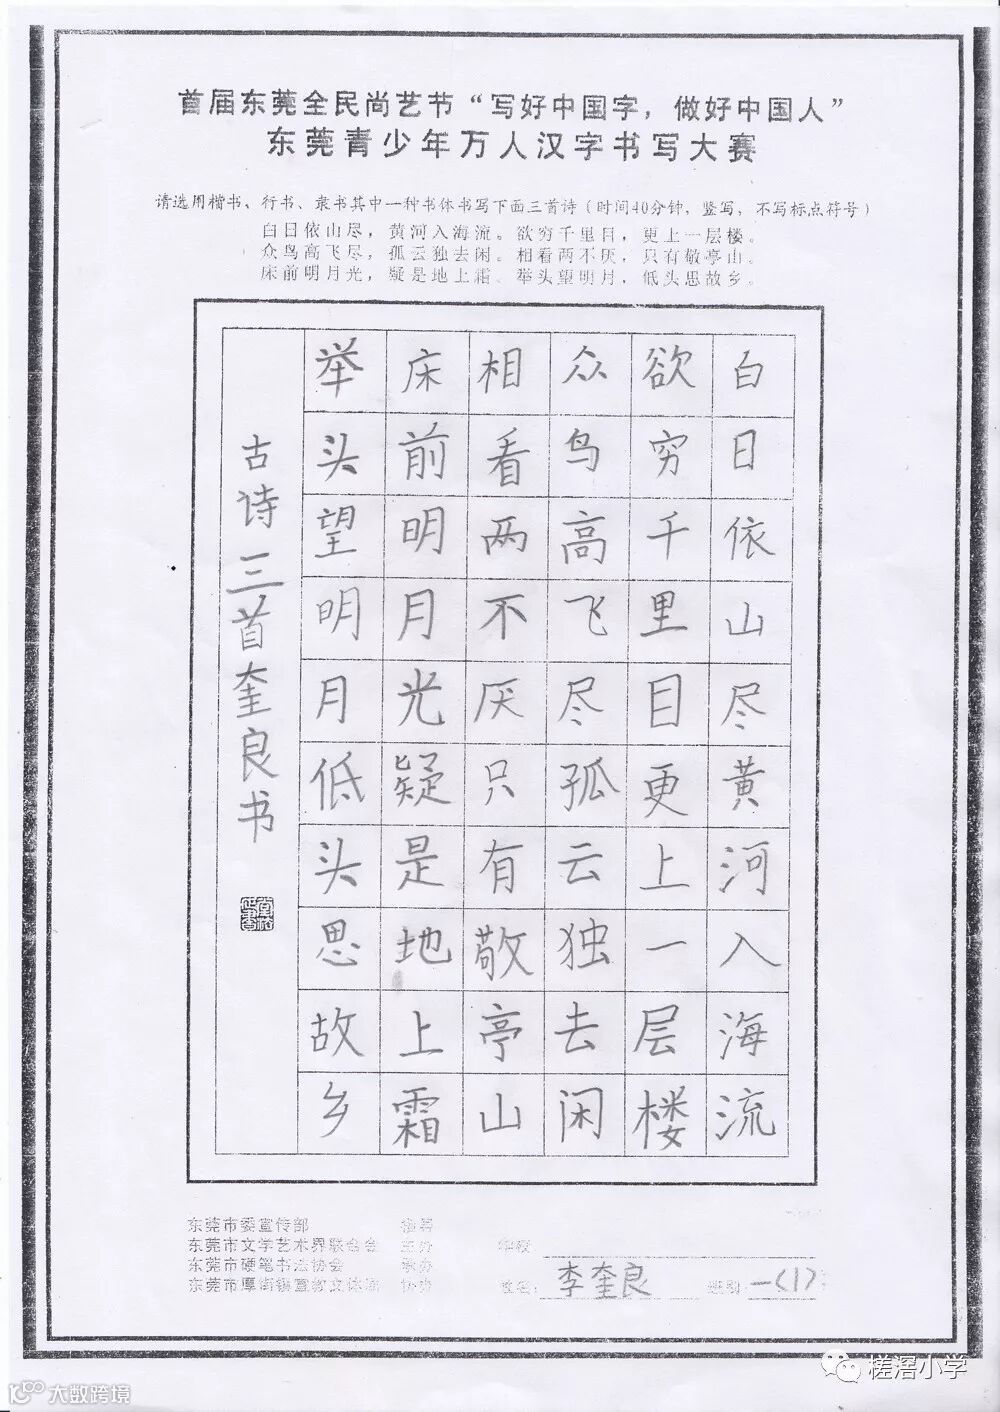 首届东莞全民尚艺节“写好中国字，做好中国人”
东莞青少年万人汉字书写大赛
请选用楷书、行书、隶书其中一种书体书写下面三首诗（时间40分钟，竖写，不写标点符号）
白日依山尽，黄河入海流。欲穷千里目，更上一层楼。
众鸟高飞尽，孤云独去闲。相看两不厌，只有敬亭山。
床前明月光，疑是地上霜。举头望明月，低头思故乡。
白日依山尽黄河入海流
欲穷千里目更上一层楼
众鸟高飞尽孤云独去闲
相看两不厌只有敬亭山
床前明月光疑是地上霜
举头望明月低头思故乡
古诗三首奎良书
东莞市委宣传部 指导
东莞市文学艺术界联合会 主办
东莞市硬笔书法协会 承办
东莞市厚街镇宣教文体局 协办
学校
姓名：李奎良 班别：一（1）
槎滘小学
大数跨境